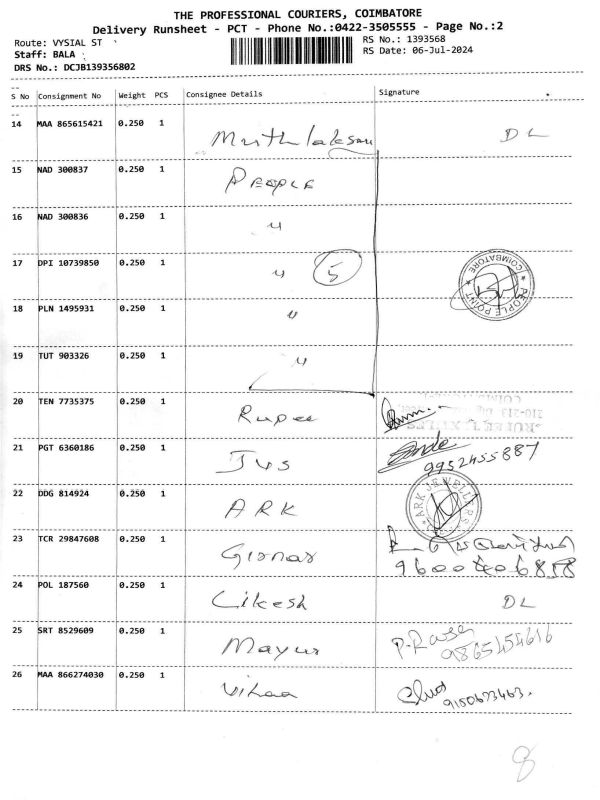 THE PROFESSIONAL COURIERS, COIMBATORE
Delivery Runsheet - PCT - Phone No.:0422-3505555 - Page No.:2
Route: VYSIAL ST
RS No.: 1393568
Staff: BALA
RS Date: 06-Jul-2024
DRS No.: DCJB139356802
S No Consignment No Weight PCS Consignee Details Signature
14 MAA 865615421 0.250 1 DL
15 NAD 300837 0.250 1 PEOPLE
16 NAD 300836 0.250 1 "
17 DPI 10739850 0.250 1 " 5
PEOPLE POINT * COIMBATORE *
18 PLN 1495931 0.250 1 "
19 TUT 903326 0.250 1 "
20 TEN 7735375 0.250 1 Rupee
21 PGT 6360186 0.250 1 Jvs 9952455887
22 DDG 814924 0.250 1 ARK
ARK JEWELLERS
23 TCR 29847608 0.250 1 Girnar
24 POL 187560 0.250 1 Likesh DL
25 SRT 8529609 0.250 1 Mayur 9865454616
26 MAA 866274030 0.250 1 Vihaa 9150673463.
8